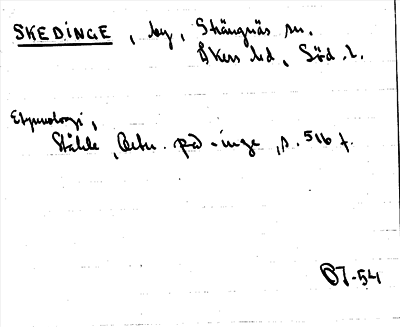 SKEDINGE, by, Strängnäs sn.
Åkers hd, Söd. l.
Etymologi,
Ståhle, Ortn. på -inge, s. 516 f.
OJ-54